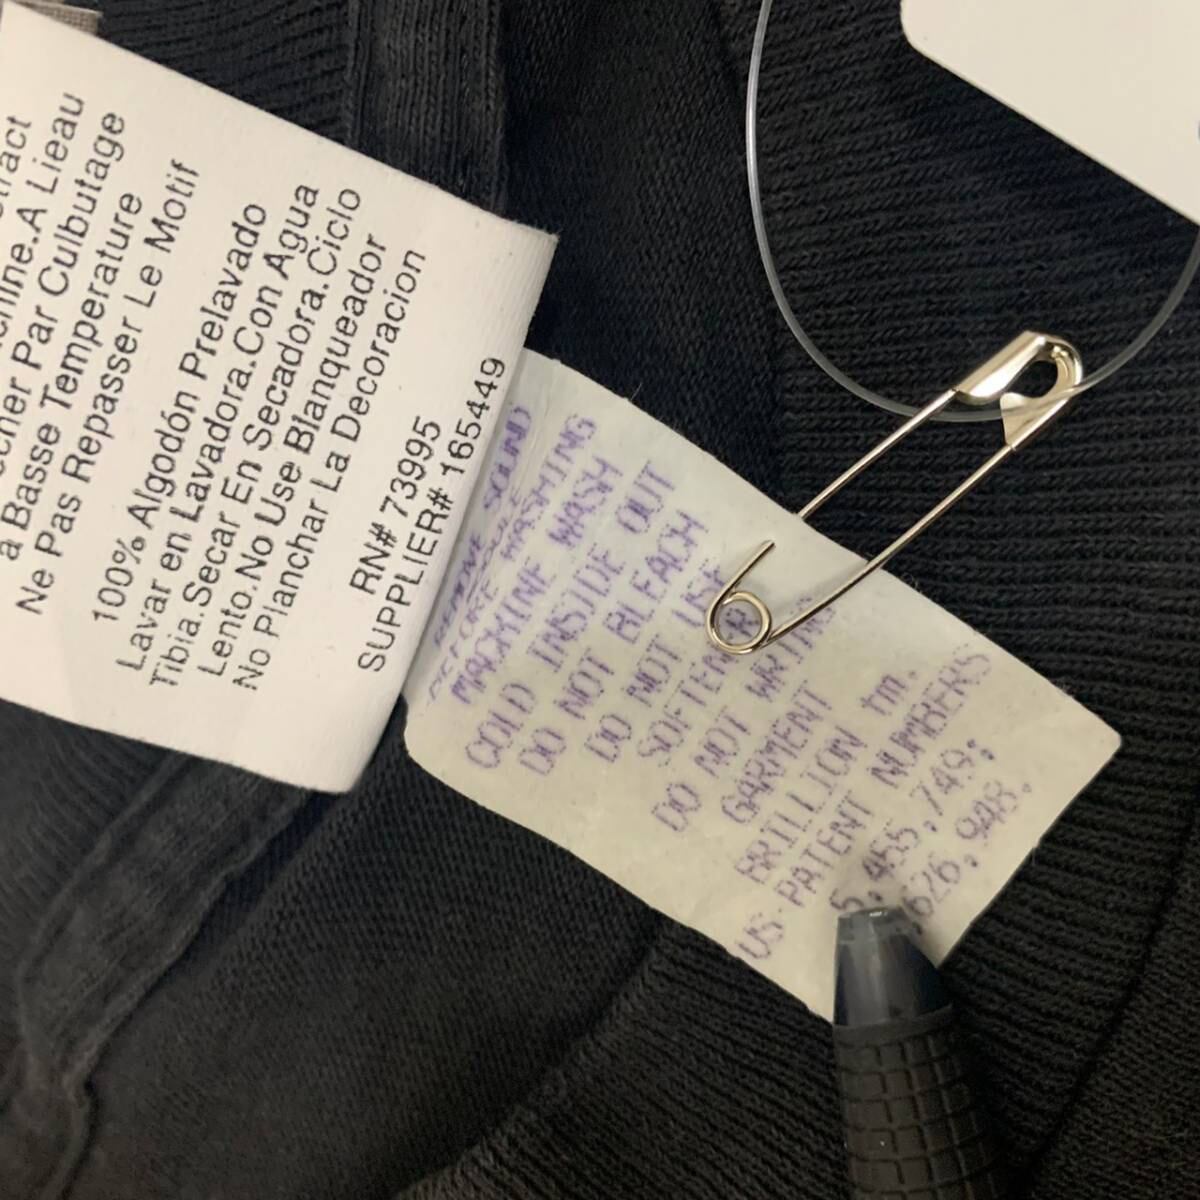 tract
chine.A Lieau
echer Par Culbutage
a Basse Temperature
Ne Pas Repasser Le Motif
100% Algodón Prelavado
Lavar en Lavadora.Con Agua
Tibia.Secar En Secadora.Ciclo
Lento.No Use Blanqueador
No Planchar La Decoracion
RN# 73995
SUPPLIER# 165449
REMOVE SOUND
BEFORE WASHING
MACHINE WASH
COLD INSIDE OUT
DO NOT BLEACH
DO NOT USE
SOFTENER
DO NOT WRING
GARMENT
BRILLION tm.
US-PATENT NUMBERS
5,455,749;
,626,948.